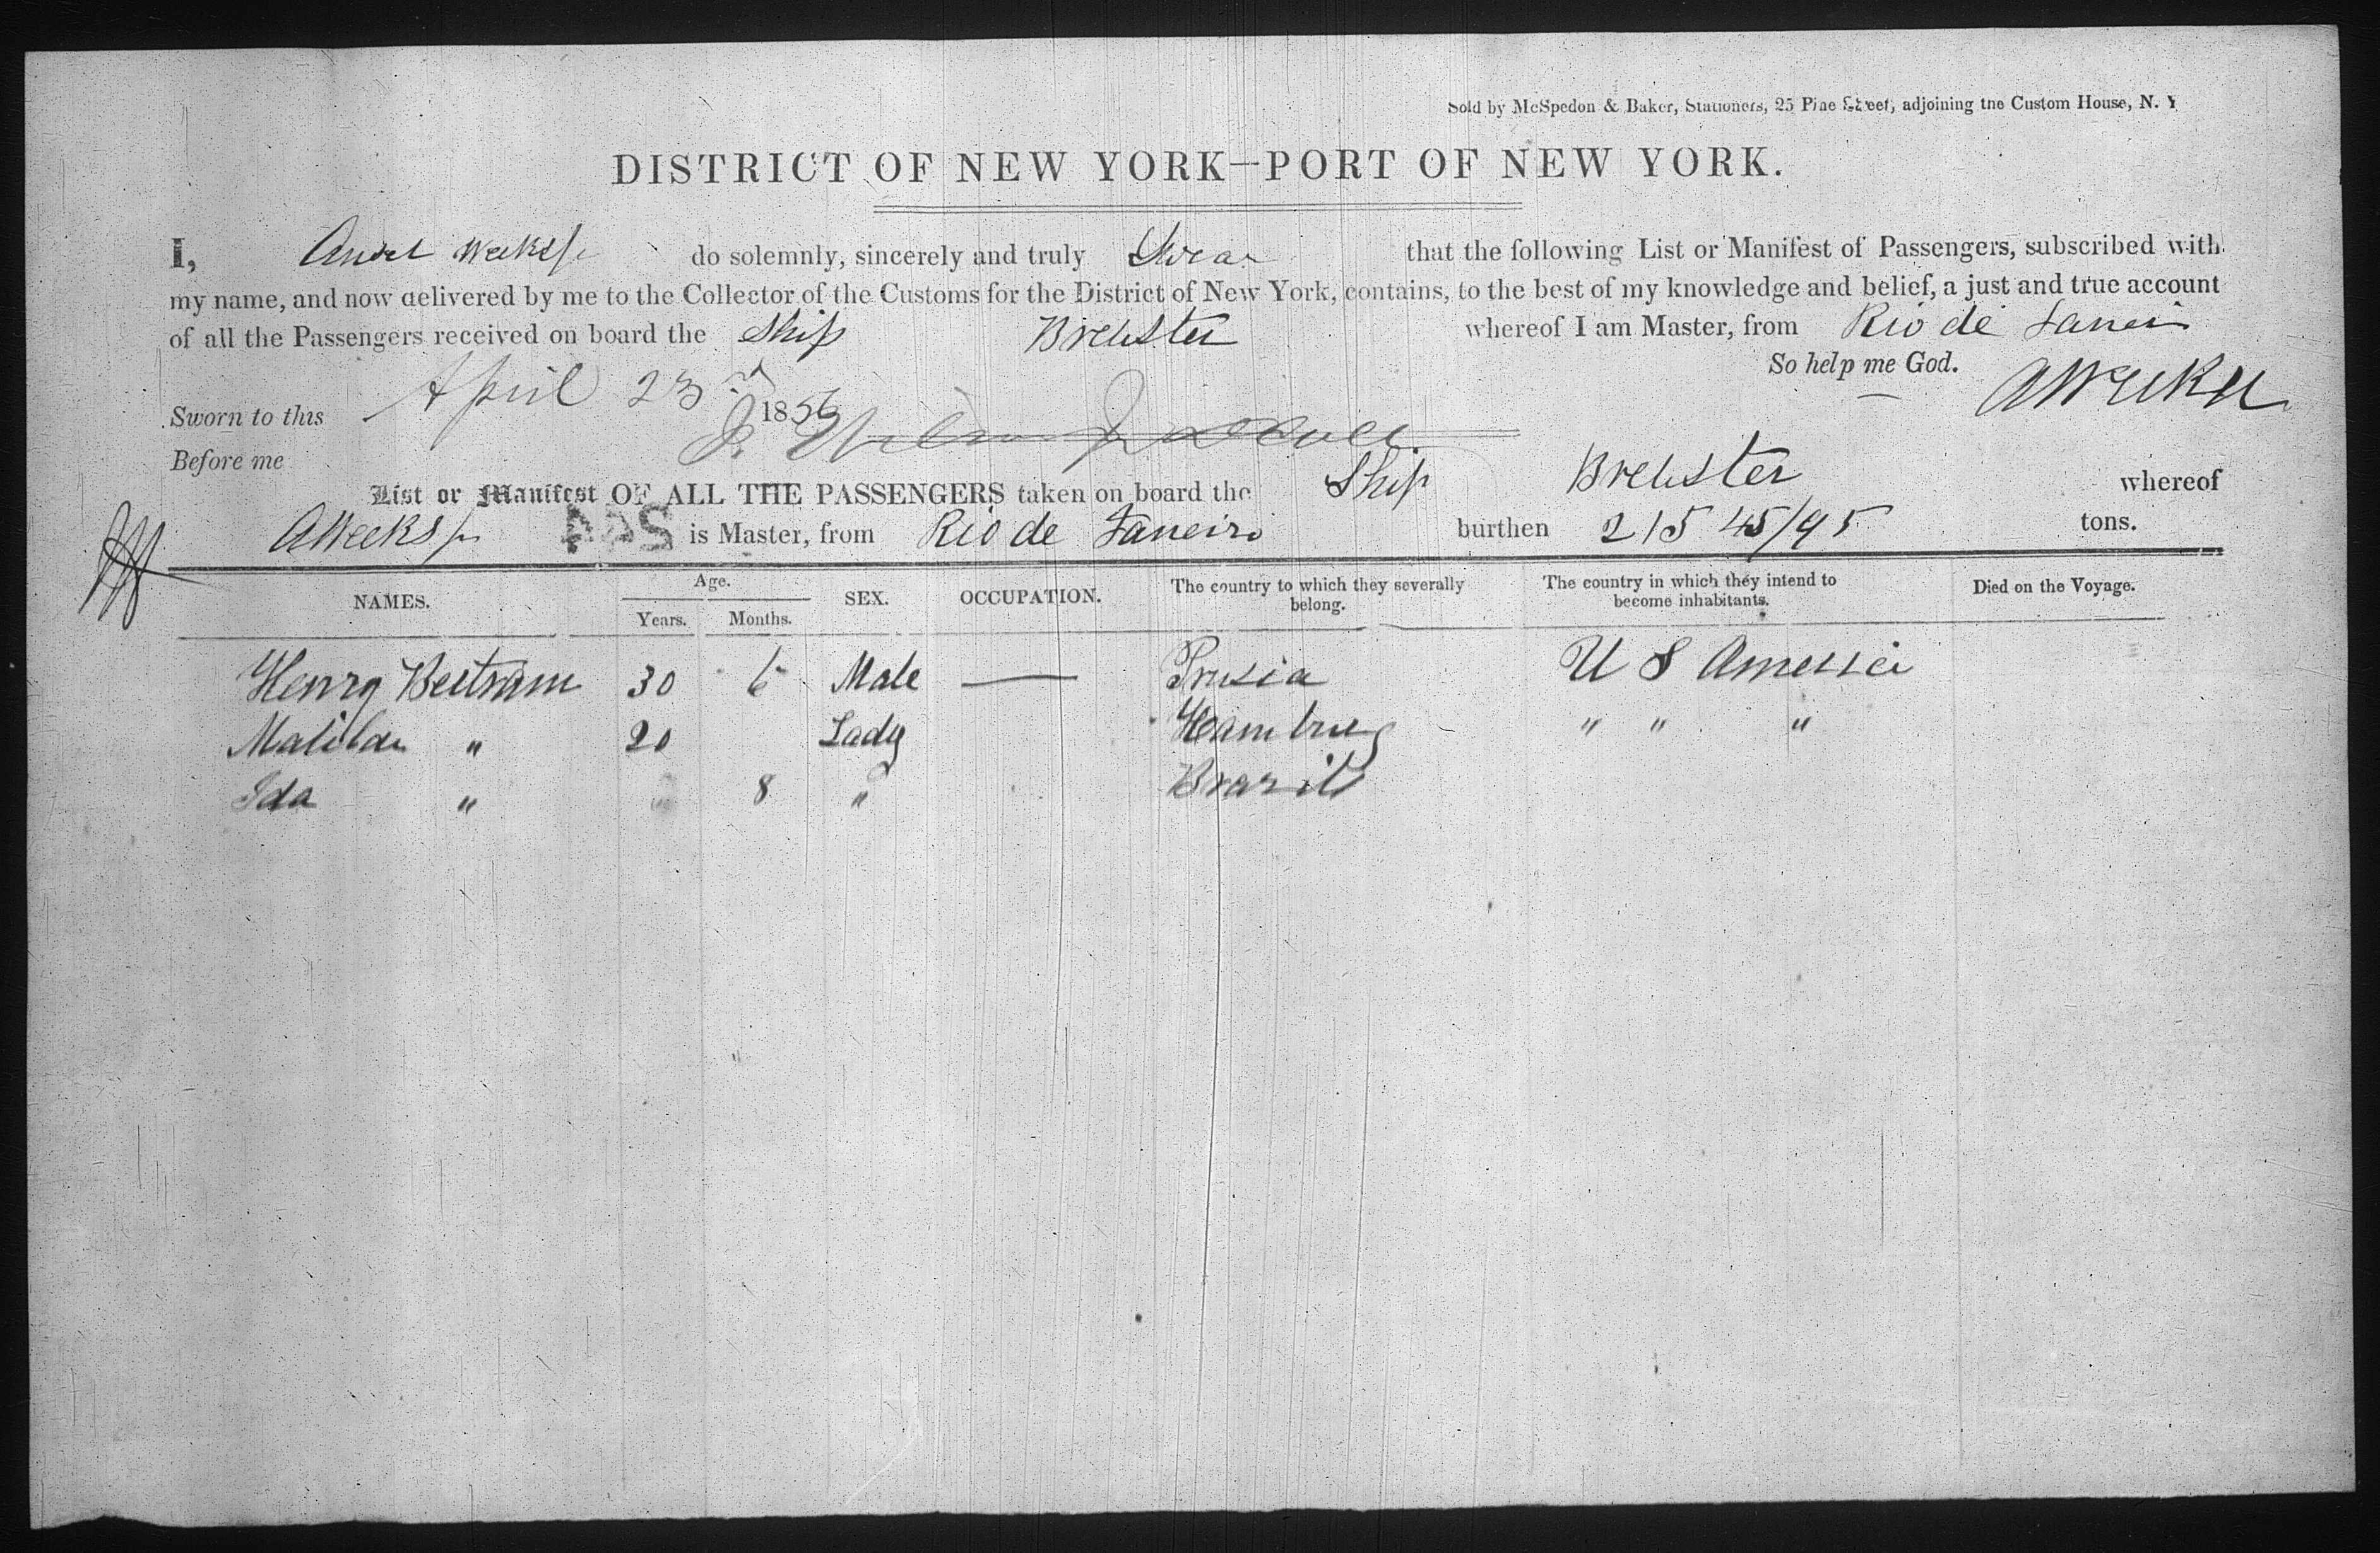 Sold by McSpedon & Baker, Stationers, 25 Pine Street, adjoining the Custom House, N. Y
DISTRICT OF NEW YORK—PORT OF NEW YORK.
I, Ansel Weeks Jr do solemnly, sincerely and truly Swear that the following List or Manifest of Passengers, subscribed with
my name, and now delivered by me to the Collector of the Customs for the District of New York, contains, to the best of my knowledge and belief, a just and true account
of all the Passengers received on board the Ship Brewster whereof I am Master, from Rio de Janeir
So help me God.
Sworn to this April 23rd 1856 A Weeks Jr
Before me
List or Manifest OF ALL THE PASSENGERS taken on board the Ship Brewster whereof
A Weeks Jr is Master, from Rio de Janeiro burthen 215 45/95 tons.
NAMES. Age. Years. Months. SEX. OCCUPATION. The country to which they severally belong. The country in which they intend to become inhabitants. Died on the Voyage.
Henry Bertram 30 6 Male — Prusia U S America
Matilda " 20 Lady Hamburg " " "
Ida " 8 " Brazil